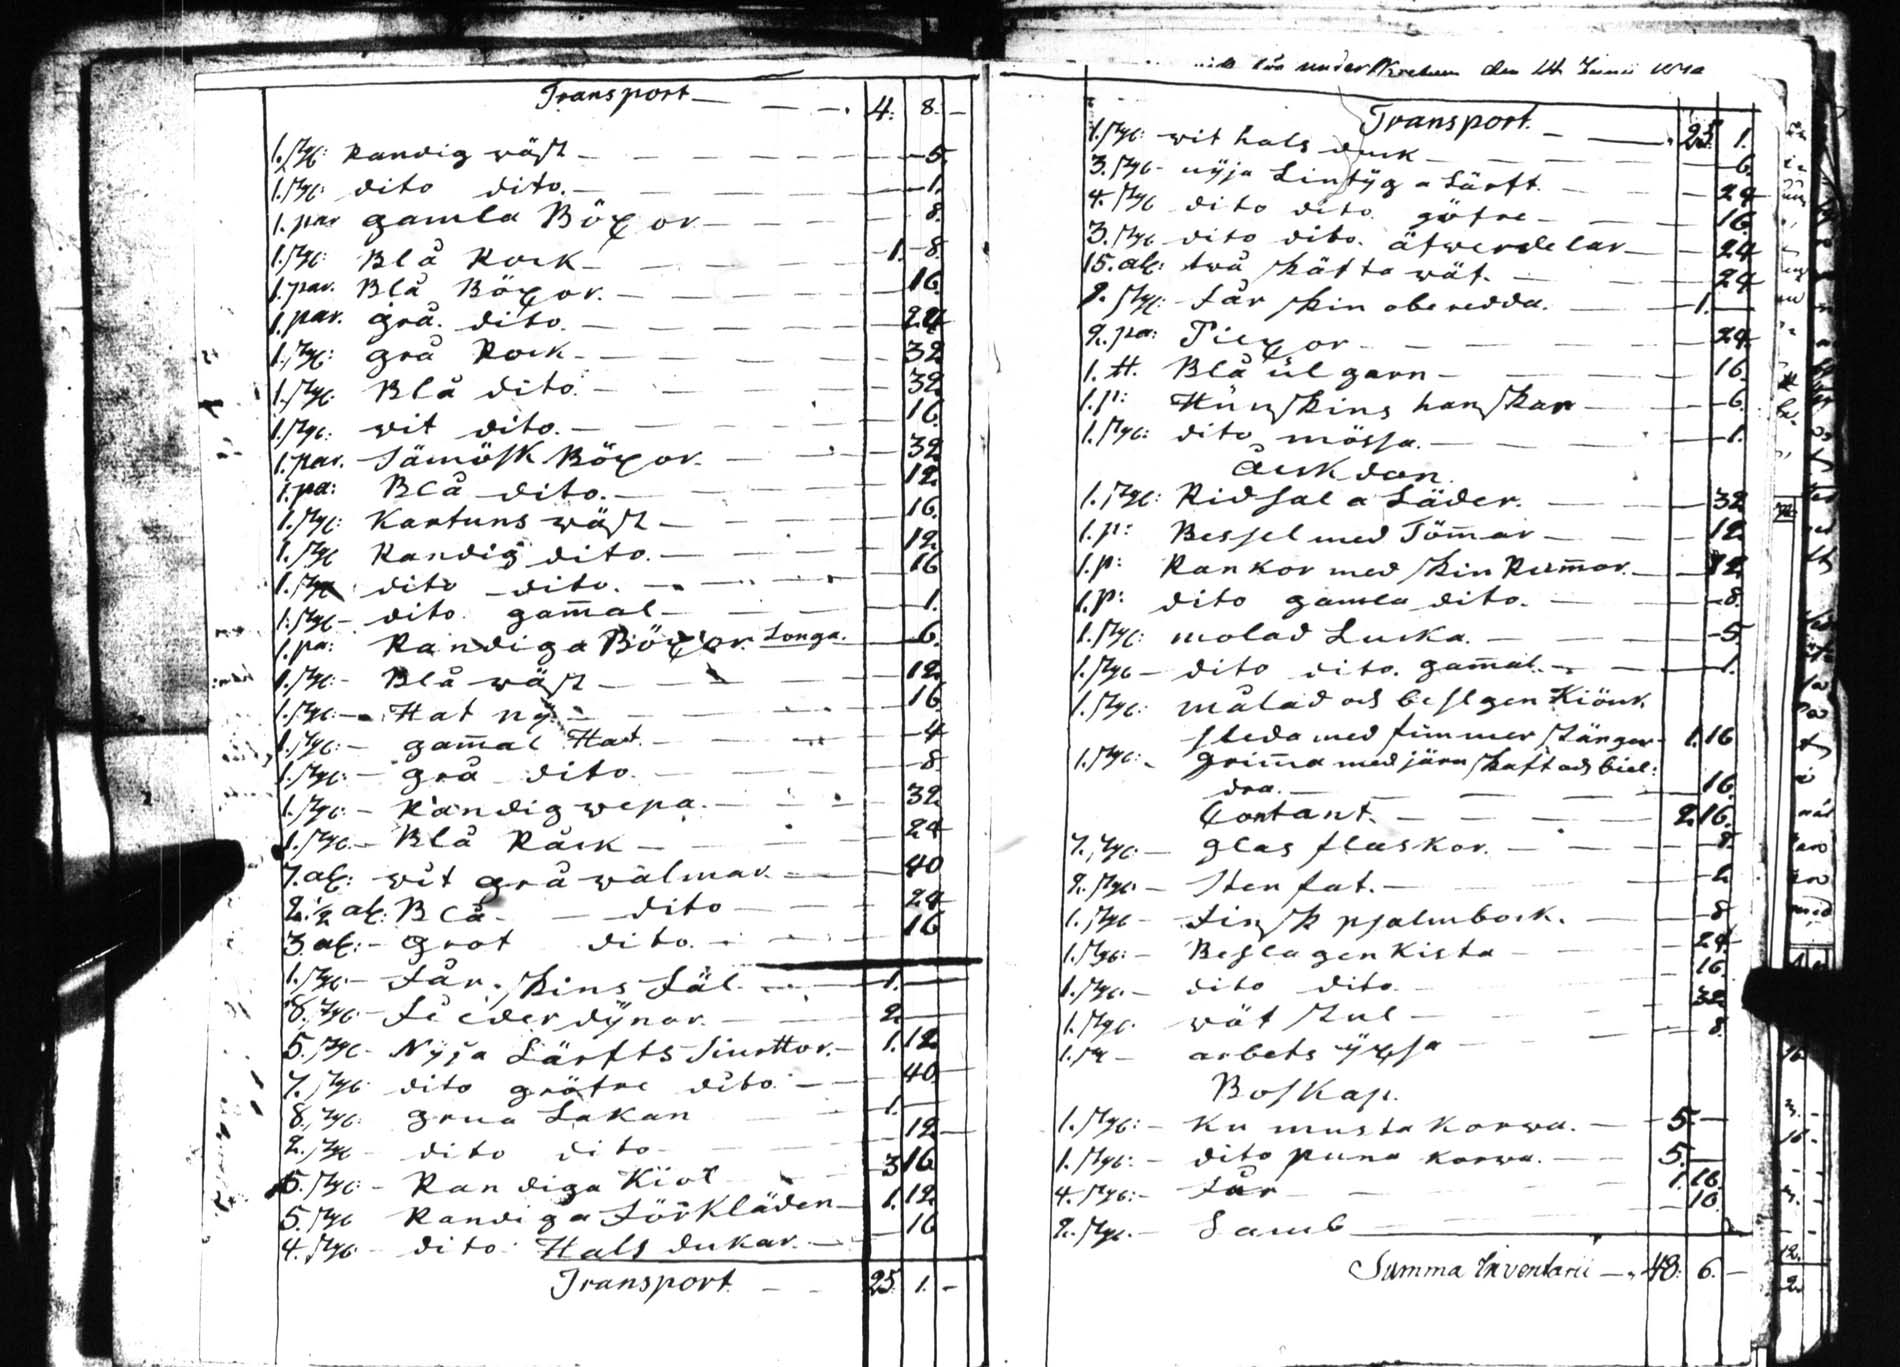 Transport 4. 8. -
1. styc: Randig wäst 5.
1. styc: dito dito. 1.
1. par gamla Böxor 8.
1. styc: Blå Rock 1. 8.
1. par. Blå Böxor. 16.
1. par. grå. dito. 24
1. styc: grå Rock 32
1. styc. Blå dito. 32
1. styc: wit dito. 16
1. par. Sämösk Böxor. 32
1. pa: Blå dito. 12.
1. styc: Kartuns wäst 16.
1. styc Randig dito. 12
1. styc dito dito. 16
1. styc dito gam̄al 1.
1. pa: Randiga Böxor. Longa. 6.
1. styc: Blå wäst 12.
1. styc: Hat ny 16
1. styc: gam̄al Hat. 4
1. styc: grå dito. 8.
1. styc: Randig wepa. 32
1. styc. Blå Råck 24
7. al: wit grå walmar. 40
2. ½ al: Blå dito 24
3. al: grot dito. 16
1. styc. Får. skins Fäl. 1.
8. styc. Fieder dÿnor. 2.
5. styc Nyja Lärfts Siurttor. 1. 12.
7. styc dito gröfre dito. 40
8. styc: grua Lakan 1.
2. styc dito dito 12
5. styc: Randiga Kiol 3 16
5. styc Randiga Förkläden 1. 12.
4. styc dito Hals dukar. 16
Transport 25. 1. -
den 14 Junii
Transport. 25. 1.
1. styc: wit hals duk 6.
3. styc nÿja Lintÿg a Lärft. 24
4. styc dito dito. göfre 16.
3. styc dito dito. äfwerdelar 24
15. al: twå skätta wät. 24
styc: Får skin oberedda. 1.
2. pa: Piexor 24
1. ℔. Blå ul garn 16.
1. p: Hunskins hanskar 6.
1. styc: dito mössa. 1.
Åckdon.
1. styc: Ridsal a Läder. 32
1. p: Bessel med Töm̄ar 12
1. p: Rankor med skin Rem̄ar. 12.
1. p: dito gamla dito. 8.
1. styc: molad Lucka. 5.
1. styc dito dito. gam̄al. 1.
1. styc: målad och beslgen Kiörk
sleda med fimmer stänger 1. 16
1. styc: grim̄a med järn skaft och biel:
dra. 16
Contant. 2. 16.
7. styc glas flaskor. 8.
2. styc. Sten fat. 2.
1. styc Finsk psalmbock. 8
1. styc: Beslagen Kista 24
1. styc. dito dito. 16.
1. styc. wät stul 32
1. st arbets ÿxsa 8.
Boskap.
1. styc: Ku musta Korwa. 5.
1. styc: dito puna korwa. 5.
4. styc: Får 1. 16.
2. styc. Lamb 16
Summa Inventarii 48. 6. -